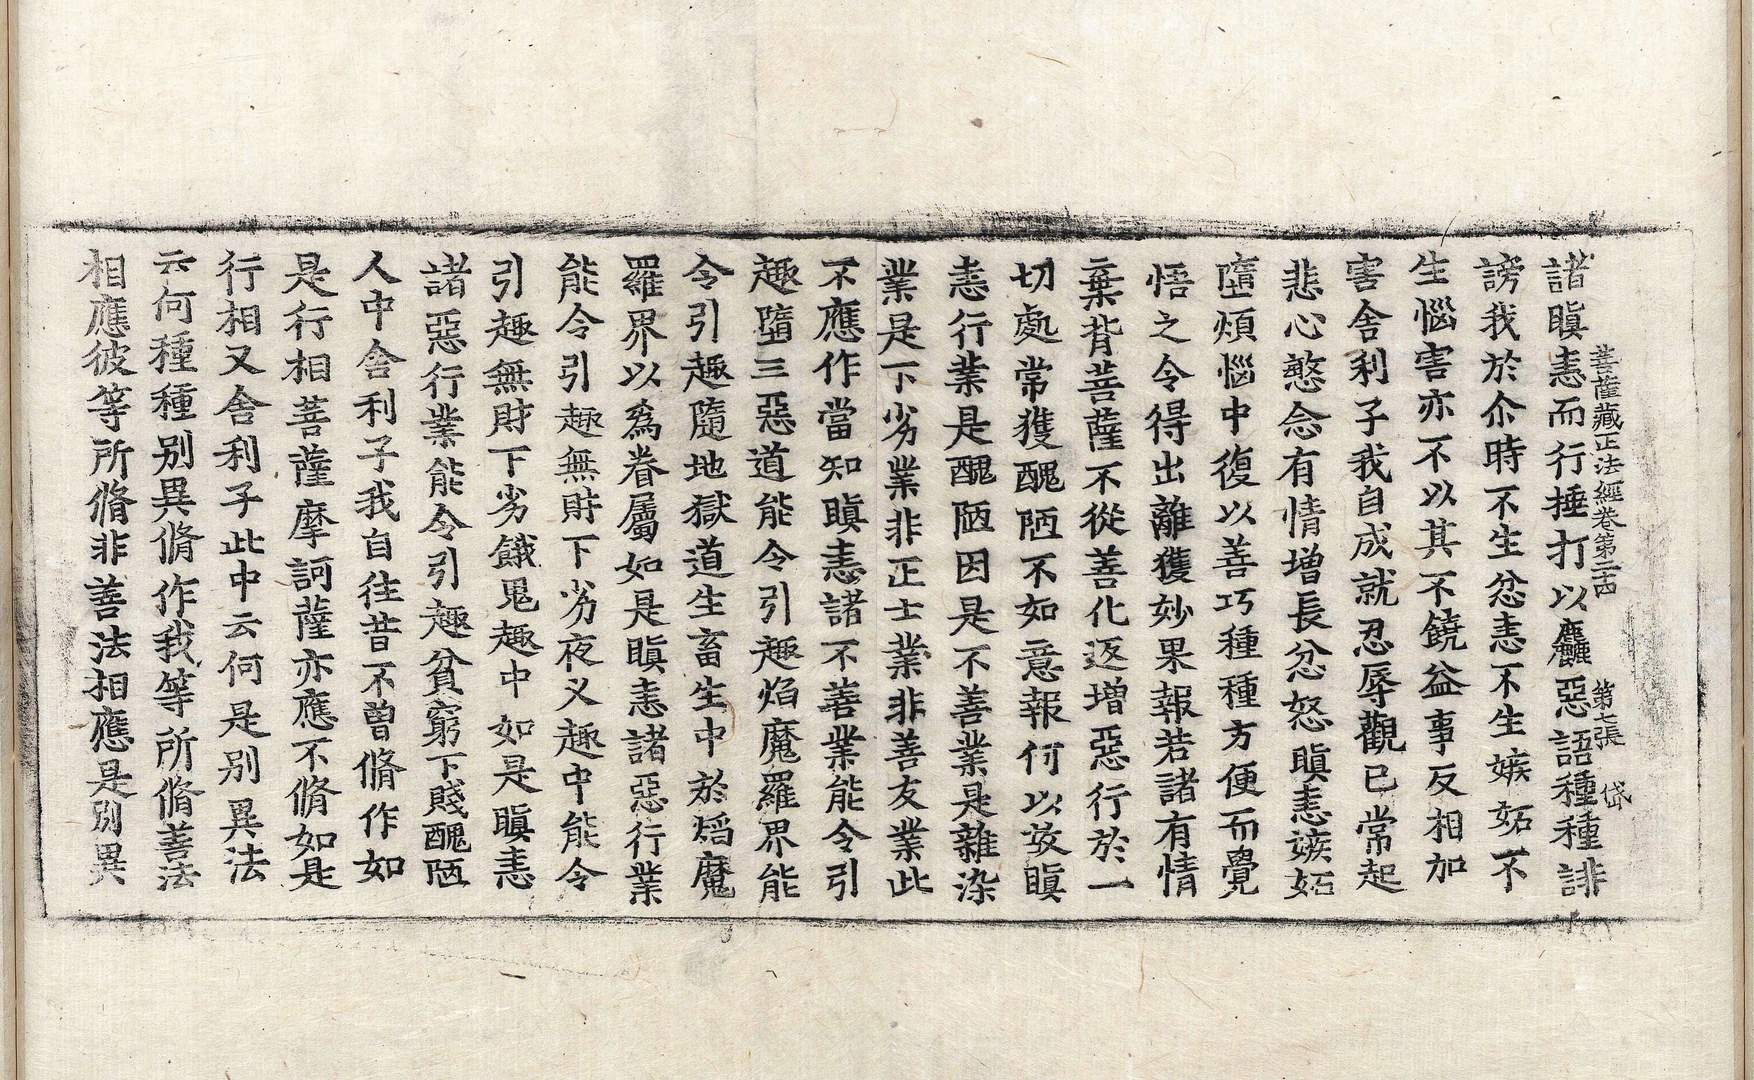 菩薩藏正法經卷第二十四 第七張 岱
諸瞋恚而行捶打以麤惡語種種誹
謗我於尒時不生忿恚不生嫉妬不
生惱害亦不以其不饒益事反相加
害舍利子我自成就忍辱觀已常起
悲心慜念有情增長忿怒瞋恚嫉妬
墮煩惱中復以善巧種種方便而覺
悟之令得出離獲妙果報若諸有情
棄背菩薩不從善化返增惡行於一
切處常獲醜陋不如意報何以故瞋
恚行業是醜陋因是不善業是雜染
業是下劣業非正士業非善友業此
不應作當知瞋恚諸不善業能令引
趣墮三惡道能令引趣焰魔羅界能
令引趣隨地獄道生畜生中於焰魔
羅界以為眷屬如是瞋恚諸惡行業
能令引趣無財下劣夜叉趣中能令
引趣無財下劣餓鬼趣中如是瞋恚
諸惡行業能令引趣貧窮下賤醜陋
人中舍利子我自往昔不曾脩作如
是行相菩薩摩訶薩亦應不脩如是
行相又舍利子此中云何是別異法
云何種種別異脩作我等所脩善法
相應彼等所脩非善法相應是別異